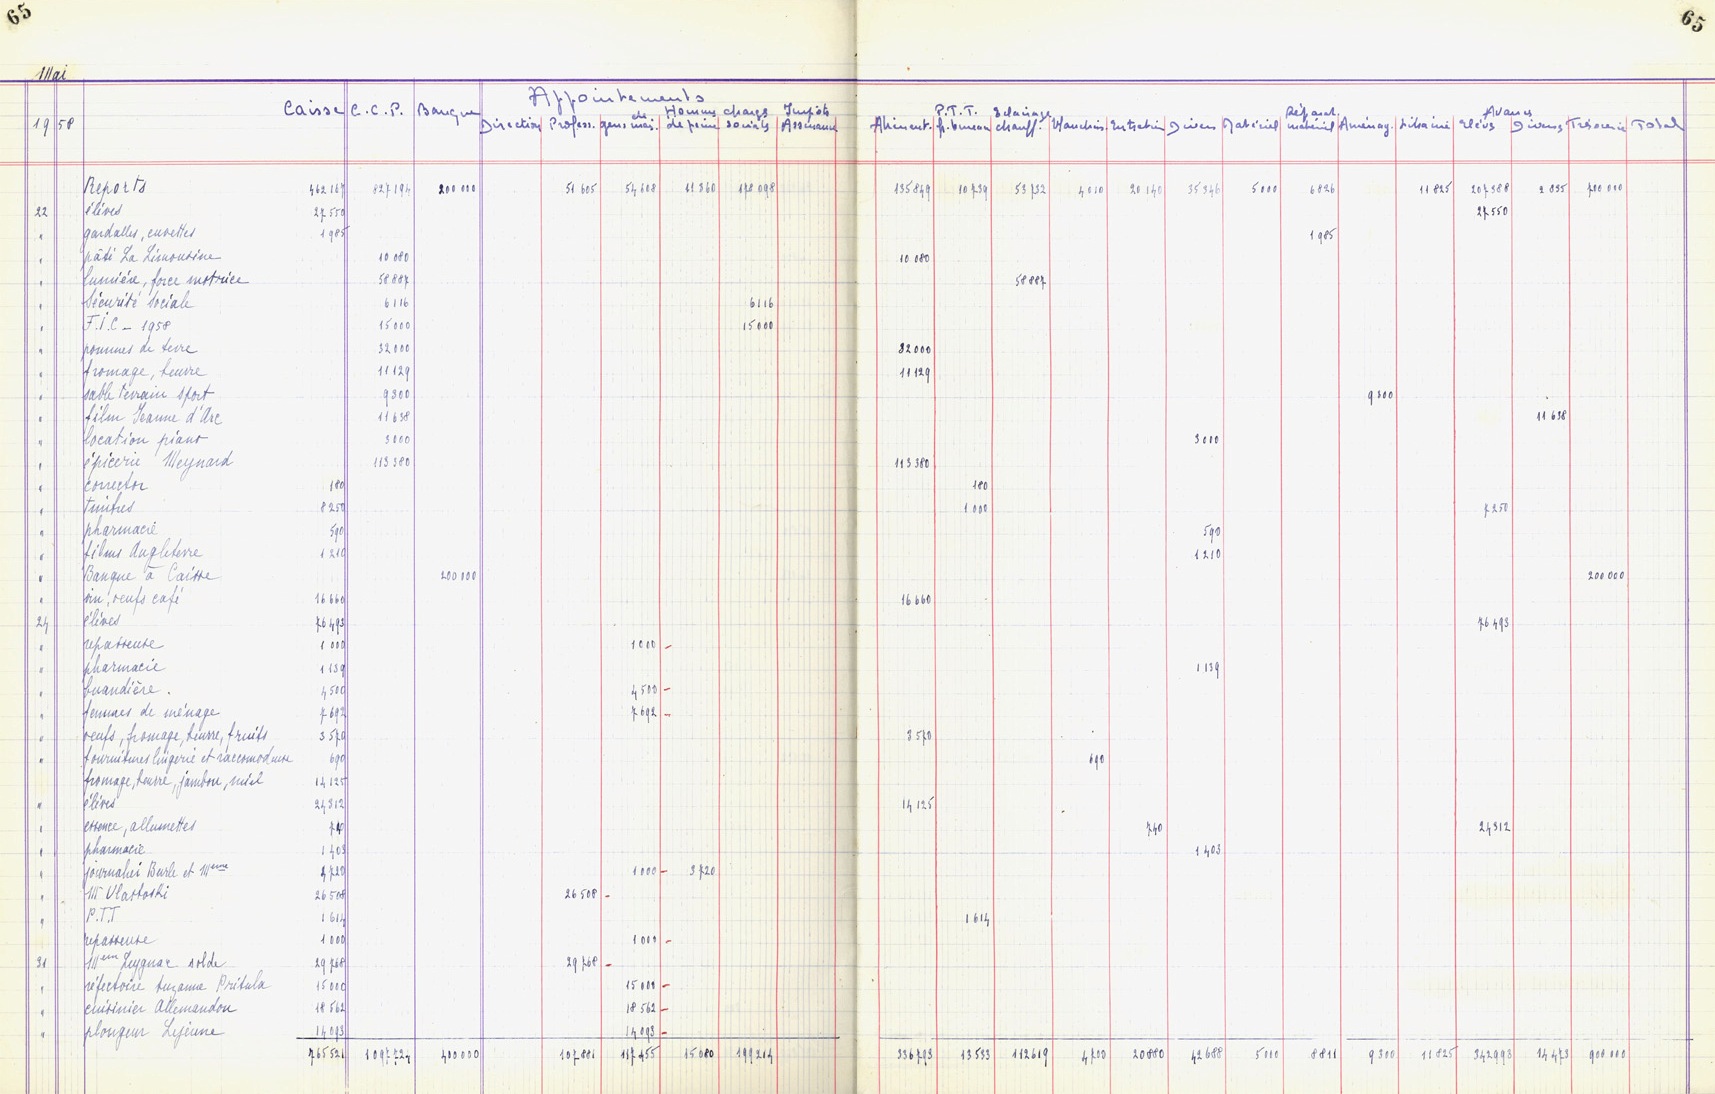 65
65
Mai
1958
Caisse C.C.P. Banque Appointements Direction Profess. gens de mais. Homme de peine charges sociales Impôts Assurance
Aliment. P.T.T. fr. bureau Eclairage chauff. Blanchis. Entretien Divers Matériel Réparat. matériel Aménag. Librairie Avances Elèves Divers Trésorerie Total
Reports 462 167 827 194 200 000 51 605 54 608 11 360 178 098 135 849 10 739 53 732 4 010 20 140 35 346 5 000 6 826 11 825 207 388 2 835 700 000
22 élèves 27 550 27 550
" gardalles, cuvettes 1 985 1 985
" pâté La Limousine 10 080 10 080
" lumière, force motrice 58 887 58 887
" Sécurité Sociale 6 116 6 116
" F.I.C - 1958 15 000 15 000
" pommes de terre 32 000 32 000
" fromage, beurre 11 129 11 129
" sable terrain sport 9 300 9 300
" film Jeanne d'Arc 11 638 11 638
" location piano 3 000 3 000
" épicerie Meynard 113 380 113 380
" corrector 180 180
" timbres 8 250 1 000 7 250
" pharmacie 590 590
" films Angleterre 1 210 1 210
" Banque à Caisse 200 000 200 000
" vin, oeufs café 16 660 16 660
24 élèves 76 493 76 493
" repasseuse 1 000 1 000 -
" pharmacie 1 139 1 139
" buandière. 4 500 4 500 -
" femmes de ménage 7 692 7 692 -
" oeufs, fromage, beurre, fruits 3 570 3 570
" fournitures lingerie et raccomodeuse 690 690
fromage, beurre, jambon, miel 14 125
" élèves 24 312 14 125
" essence, allumettes 740 740 24 312
" pharmacie 1 403 1 403
" journaliers Burle et Mme 4 720 1 000 - 3 720
" M Vlastoski 26 508 26 508 -
" P.T.T 1 614 1 614
" repasseuse 1 000 1 000 -
31 Mme Leygnac solde 29 768 29 768 -
" réfectoire Suzanna Pritula 15 000 15 000 -
" cuisinier Allemandou 18 562 18 562 -
" plongeur Lejeune 14 093 14 093 -
765 521 1 097 724 400 000 107 881 117 455 15 080 199 214 336 793 13 533 112 619 4 700 20 880 42 688 5 000 8 811 9 300 11 825 342 993 14 473 900 000